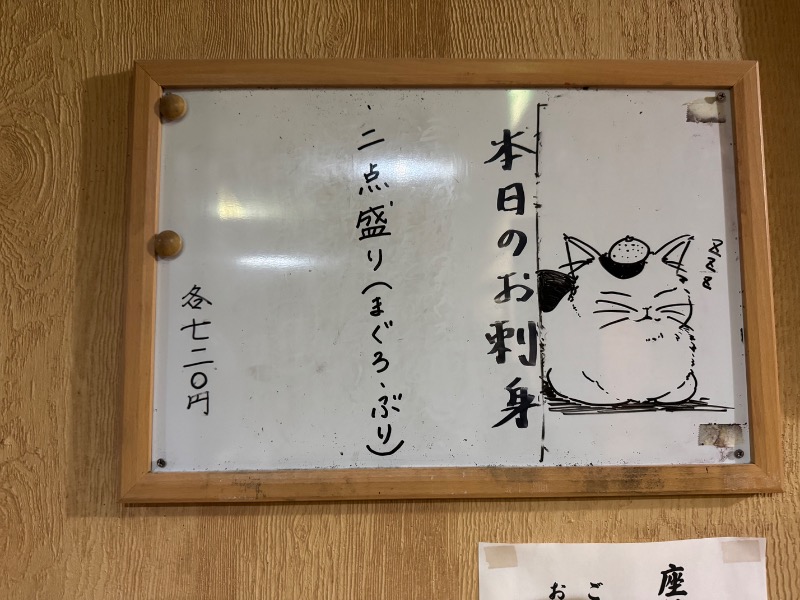 本日のお刺身
、二点盛り(まぐろ、ぶり)
各七二〇円
zzz
座
ご
お